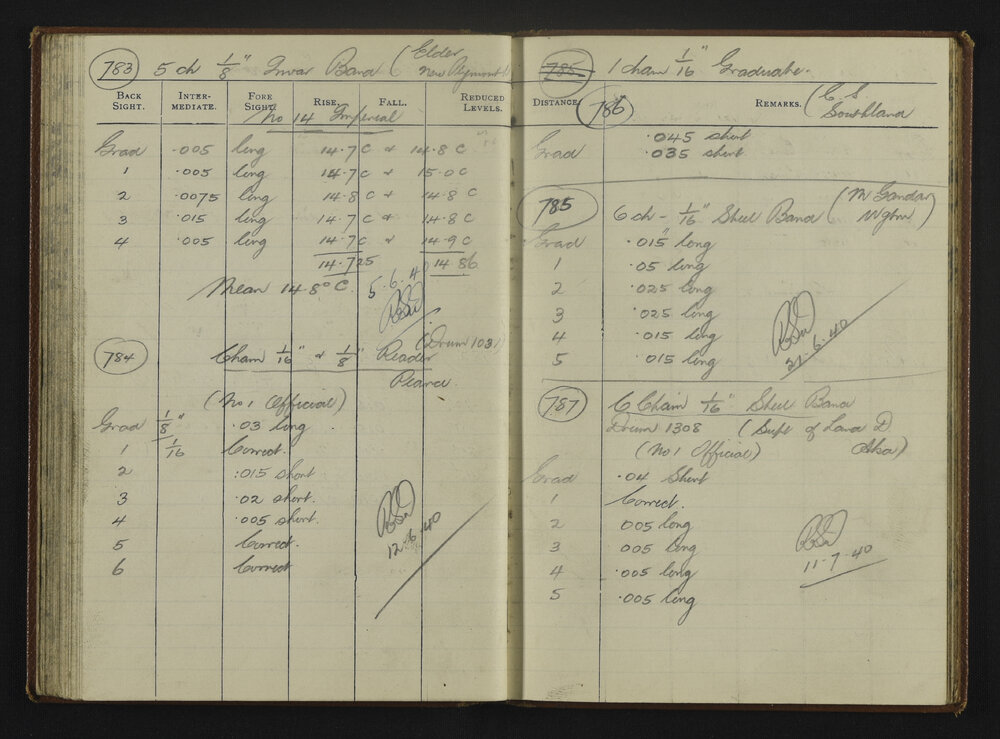 783 5 ch 1/8" Invar Band (Elder
New Plymouth)
BACK SIGHT. INTER-MEDIATE. FORE SIGHT. RISE. FALL. REDUCED LEVELS.
No 14 Imperial
Grad .005 long 14.7 C & 14.8 C
1 .005 long 14.7 C & 15.0 C
2 .0075 long 14.8 C & 14.8 C
3 .015 long 14.7 C & 14.8 C
4 .005 long 14.7 C & 14.9 C
14.725 14.86
Mean 14.8° C. 5.6.40
784 Chain 1/16" & 1/8" Reader (Drum 1031)
(No 1 Official)
Grad 1/8" .03 long
1 1/16 Correct.
2 .015 short
3 .02 short.
4 .005 short.
5 Correct.
6 Correct
12.6.40
785 1 chain 1/16" Graduate.
DISTANCE. 786 REMARKS. (C. S.
Southland
Grad .045 short
.035 short
785 6 ch - 1/16" Steel Band (
Wgtn)
Grad .015" long
1 .05 long
2 .025 long
3 .025 long
4 .015 long
5 .015 long
21.6.40
787 6 Chain 1/16" Steel Band
Drum 1308 (Supt of Land D
(No 1 Official)
Grad .04 Short
1 Correct.
2 005 long
3 .005 long
4 .005 long
5 .005 long
11-7-40